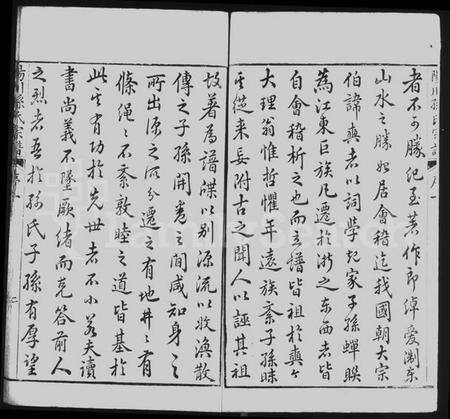 陽川孫氏宗譜
者不可勝紀至著作郎綽愛浙東
山水之勝始居會稽迄我國朝大宗
伯諱奭者以詞學起家子孫蟬聯
為江東巨族凡遷於浙之东西者皆
自會稽析之也而立譜皆祖於奭今
大理翁惟哲懼年遠族紊子孫昧
其從来妄附古之聞人以誣其祖
故著為譜牒以别源流以收渙散
傳之子孫開卷之間咸知身之
所出源之所分遷之有地井井有
條繩繩不紊敦睦之道皆基於
此其有功於先世者不小若夫讀
書尚義不墜厥緒而克答前人
之烈者吾於孫氏子孫有厚望
陽川孫氏宗譜